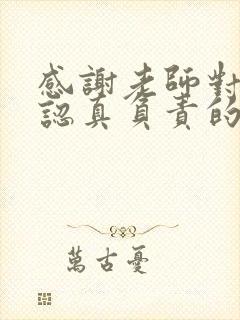 感謝老師對
認真負責的
萬古憂